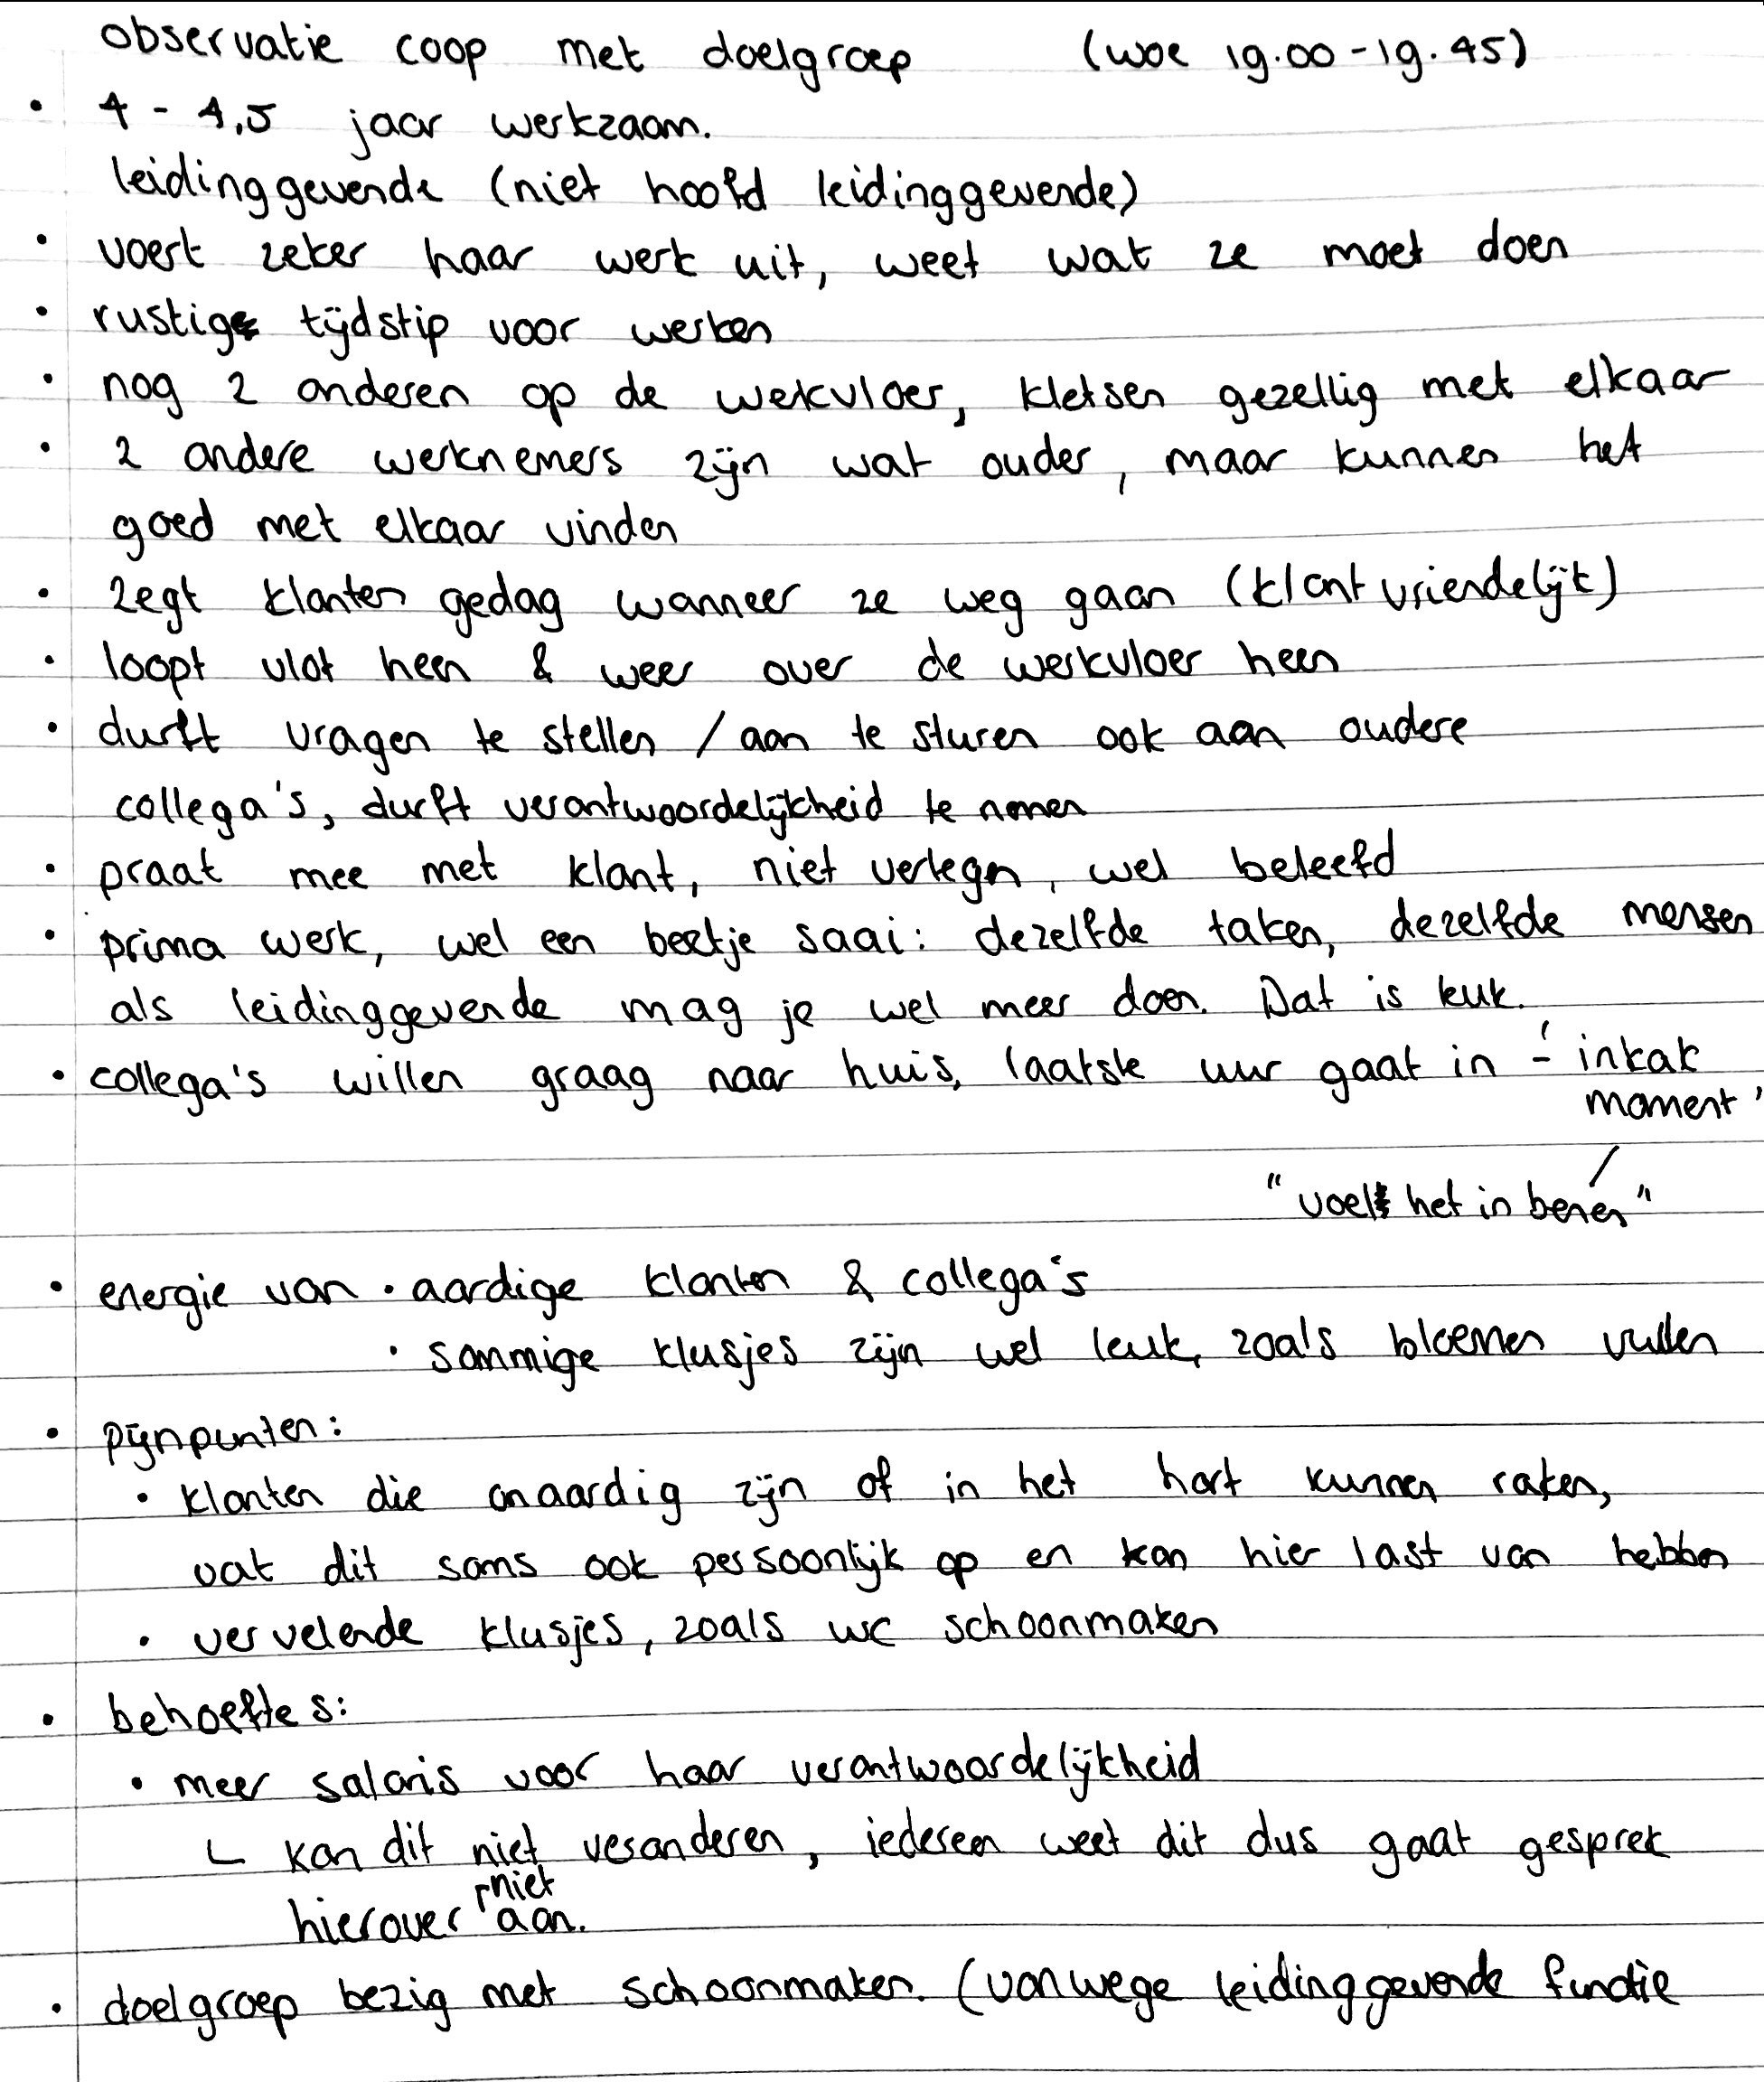 observatie coop met doelgroep (woe 19.00-19.45)
• 4 - 4,5 jaar werkzaam.
leidinggevende (niet hoofd leidinggevende)
• voert zeker haar werk uit, weet wat ze moet doen
• rustige tijdstip voor werken
• nog 2 anderen op de wekvloer, kletsen gezellig met elkaar
• 2 andere werknemers zijn wat ouder, maar kunnen het
goed met elkaar vinden
• zegt klanten gedag wanneer ze weg gaan (klantvriendelijk)
• loopt vlot heen & weer over de werkvloer heen
• durft vragen te stellen / aan te sturen ook aan oudere
collega's, durft verantwoordelijkheid te nemen
• praat mee met klant, niet verlegn, wel beleefd
• prima werk, wel een beetje saai: dezelfde taken, dezelfde mensen
als leidinggevende mag je wel meer doen. Dat is leuk.
• collega's willen graag naar huis, laatste uur gaat in - ' inkak
moment '
"voelt het in benen"
• energie van • aardige klanten & collega's
• sommige klusjes zijn wel leuk, zoals bloemen vullen
• pijnpunten:
• klanten die onaardig zijn of in het hart kunnen raken,
vat dit soms ook persoonlijk op en kan hier last van hebben
• vervelende klusjes, zoals wc schoonmaken
• behoeftes:
• meer salaris voor haar verantwoordelijkheid
└ kan dit niet veranderen, iedereen weet dit dus gaat gesprek
hierover niet aan.
• doelgroep bezig met schoonmaken. (vanwege leidinggevende functie